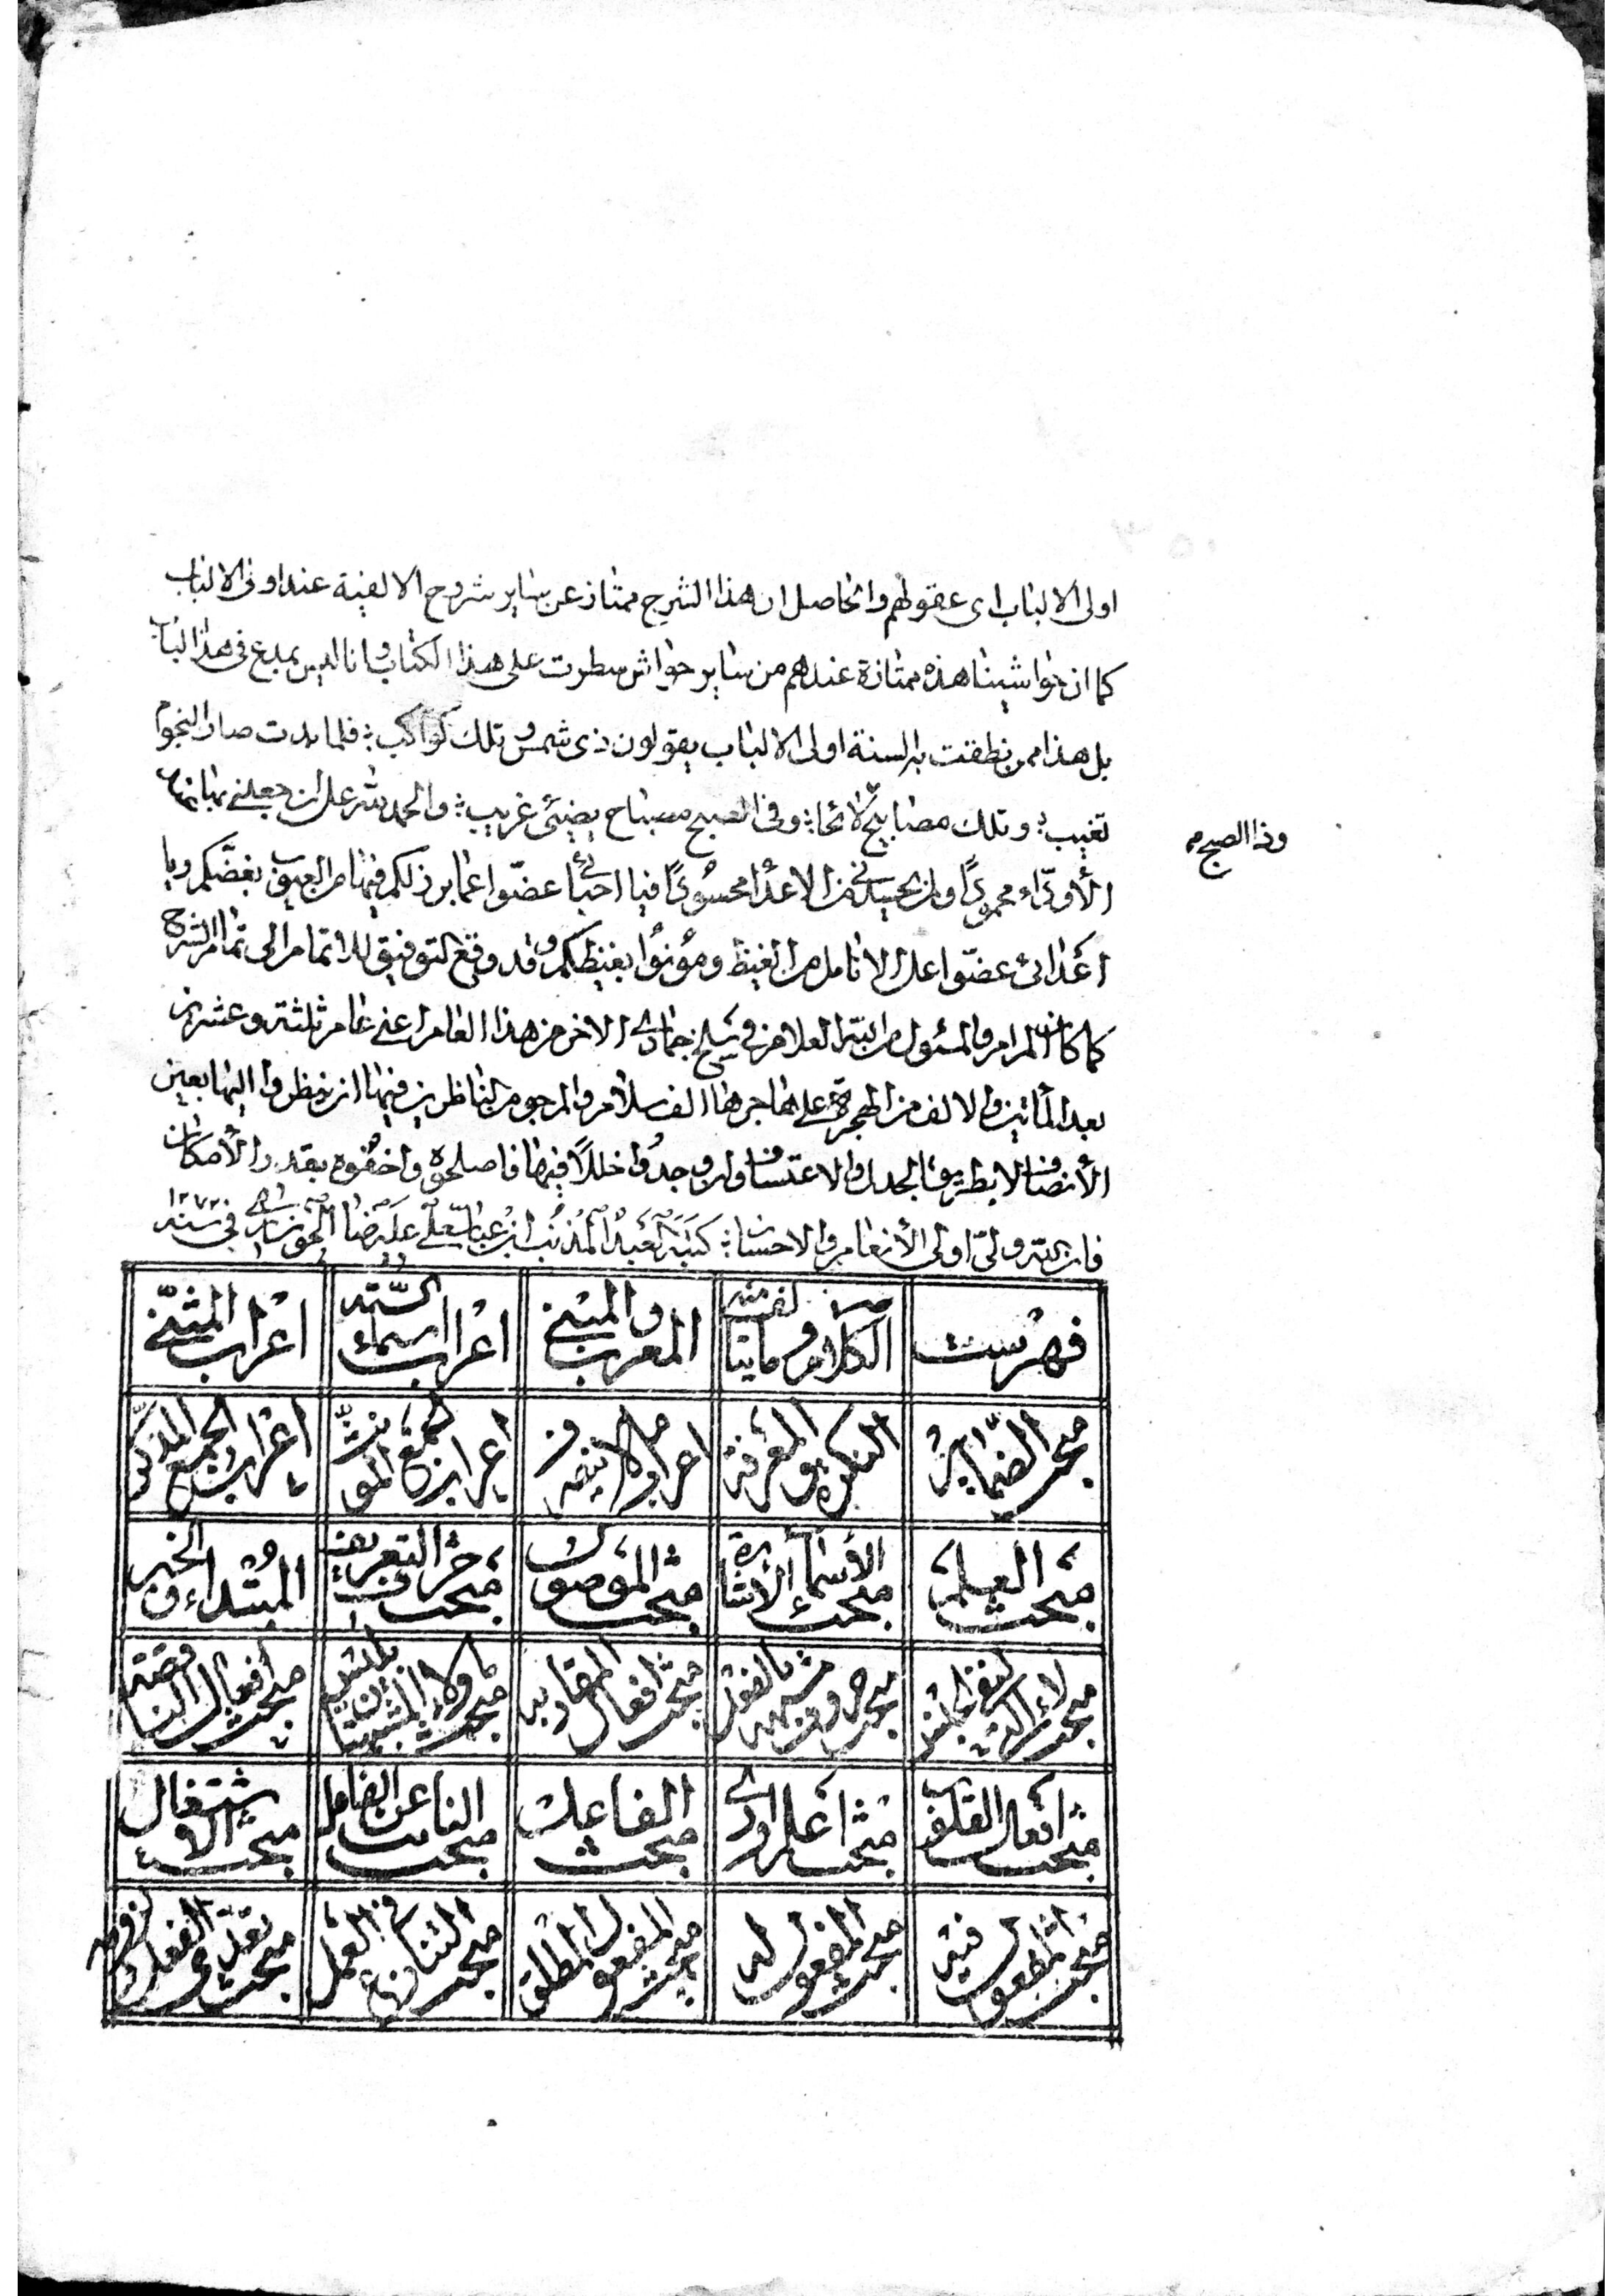 اولى الالباب اى عقولهم والحاصل ان هذا الشرح ممتاز عن ساير شروح الالفية عند اولى الالباب
كما ان حواشينا هذه ممتازة عندهم من ساير حواش سطرت على هذا الكتاب وانا لديس بمدع فى هذا الباب
بل هذا مما نطقت به السنة اولى الالباب يقولون ذى شمس وتلك كواكب فلما بدت صار النجوم
تغيب وتلك مصابيح لائحا وفى الصبح مصباح يضيئى غريب والحمد لله على ان جعلنى
وذا الصبح م
الأودّاء محمودًا وان يحسدنى من الاعدا محسودًا فيا احبائى عضّوا عما برز لكم فيها من العيوب بغضّكم ويا
اعدائى عضّوا على الانامل من الغيظ وموتوا بغيظكم وقد وقع التوفيق للاتمام الى تمام الشرح
كما كان المرام والمسئول من الله العلام فى سلخ جمادى الاخر من هذا العام اعنى عام ثلثة وعشرين
بعد المأتين والالف من الهجرة على مهاجرها الف سلام والمرجو من الناظرين فيها ان ينظروا اليها بعين
الأنصاف لا بطريق الجدل والاعتساف وان وجدوا خللاً فيها فاصلحوه واخفوه بقدر الأمكان
فان الله ولىّ اولى الأنعام والاحسان كتبه العبد المذنب ابن عباسعلى علىرضا الخونسارى فى سنه ١٢٧٢
فهرست الكلام وما يتألف منه المعرب والمبنى اعراب اسماء الستّه اعراب المثنّى
مبحث الضمّاير النكره والمعرفة اعراب مالا ينصرف اعراب جمع المونث إعراب الجمع المذكّر
مبحث العلم مبحث الأسماء الأشارة مبحث الموصول مبحث حرف التعريف المبتداء والخبر
مبحث لاء التى لنفى الجنس مبحث حروف مشبهه بالفعل مبحث افعال المقاربه مبحث ما ولاء المشبهتان بليس مبحث افعال الناقصة
مبحث افعال القلوب مبحث اعلم وارى مبحث الفاعل مبحث النائب عن الفاعل مبحث الاشتغال
مبحث المفعول فيه مبحث المفعول له مبحث المفعول المطلق مبحث التنازع فى العمل مبحث تعدّى الفعل ولزومه